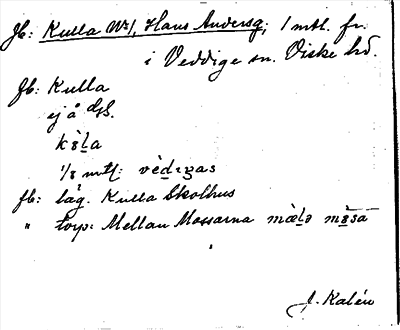 Jb: Kulla No 1, Hans Andersg; 1 mtl. fr.
i Veddige sn. Viske hd.
fb: Kulla
ej å GS.
1/8 mtl: vèdıgas
fb: läg. Kulla Skolhus
" torp: Mellan Mossarna
J. Kalén